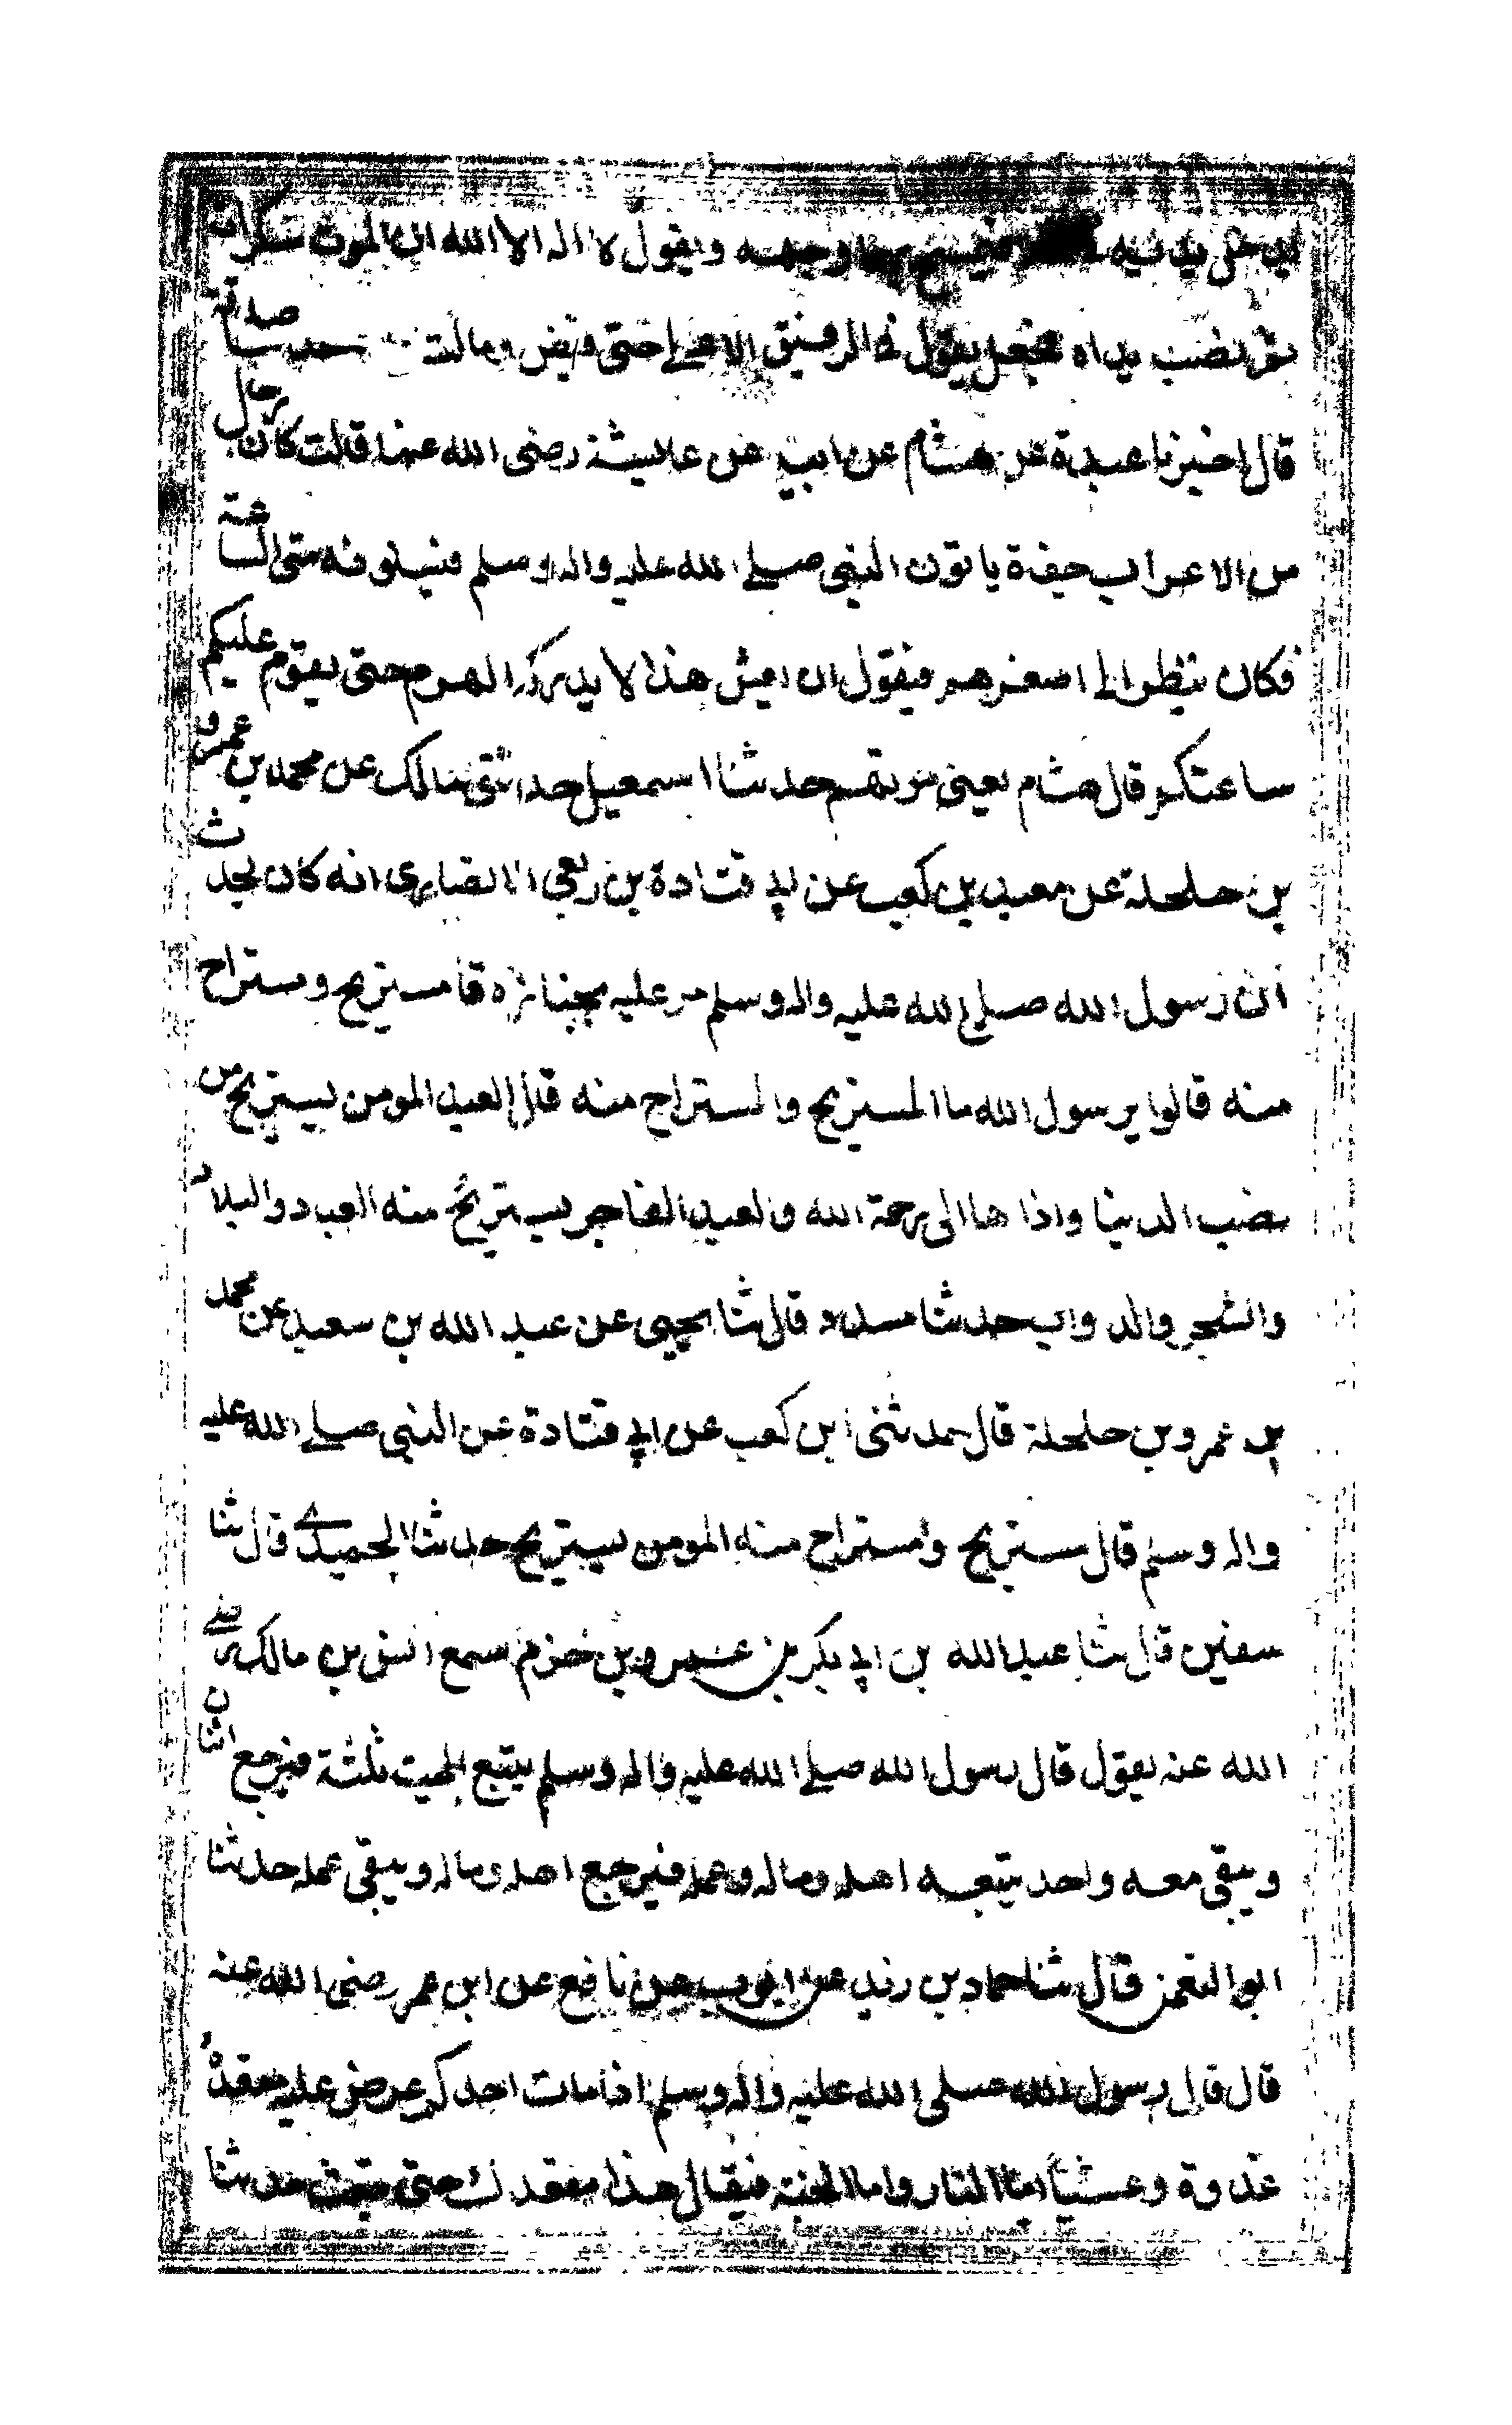 يدخل يديه فيه فيمسح بهما وجهه ويقول لا اله الا الله ان للموت سكرات
ثم نصب يداه فجعل يقول في الرفيق الاعلى حتى قبض ومالت حدثنا صدقة
قال اخبرنا عبدة عن هشام عن ابيه عن عايشة رضى الله عنها قالت كان رجال
من الاعراب حفاة ياتون النبي صلى الله عليه واله وسلم فيسئلونه متى الساعة
فكان ينظر الى اصغرهم فيقول ان يعش هذا لا يدركه الهرم حتى يقوم عليكم
ساعتكم قال هشام يعني موتهم حدثنا اسمعيل حدثني مالك عن محمد بن عمرو
بن حلحلة عن معبد بن كعب عن ابي قتادة بن ربعي الانصاري انه كان يحدث
ان رسول الله صلى الله عليه واله وسلم مر عليه بجنازة قا مستريح ومستراح
منه قالوا يرسول الله ما المستريح والمستراح منه قال العبد المومن يستريح من
نصب الدنيا واذاها الى رحمة الله والعبد الفاجر يستريح منه العباد والبلاد
والشجر والدواب حدثنا مسدد قال ثنا يحيى عن عبد الله بن سعيد عن محمد
بن عمرو بن حلحلة قال حدثنى ابن كعب عن ابي قتادة عن النبي صلى الله عليه
واله وسلم قال مستريح ومستراح منه المومن يستريح حدثنا الحميدي قال ثنا
سفين قال ثنا عبد الله بن ابي بكر بن عمرو بن حزم سمع انس بن مالك رضي
الله عنه يقول قال رسول الله صلى الله عليه واله وسلم يتبع الميت ثلثة فيرجع اثنان
ويبقى معه واحد يتبعه اهله وماله وعمله فيرجع اهله وماله ويبقى عمله حدثنا
ابو النعمن قال ثنا حماد بن زيد عن ايوب عن نافع عن ابن عمر رضى الله عنه
قال قال رسول الله صلى الله عليه واله وسلم اذا مات احدكم عرض عليه مقعده
غدوة وعشيا اما النار واما الجنة فيقال هذا مقعدك حتى تبعث حدثنا